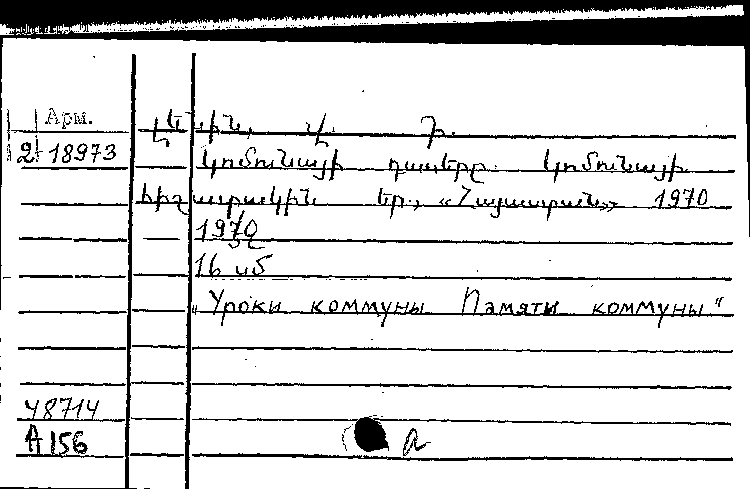 Арм.
2 18973
Լենին, Վ. Ի.
Կոմունայի դասերը. Կոմունայի
հիշատակին. Եր., «Հայաստան» 1970
1970
16 էջ
"Уроки коммуны Памяты коммуны"
48714
A 156
a